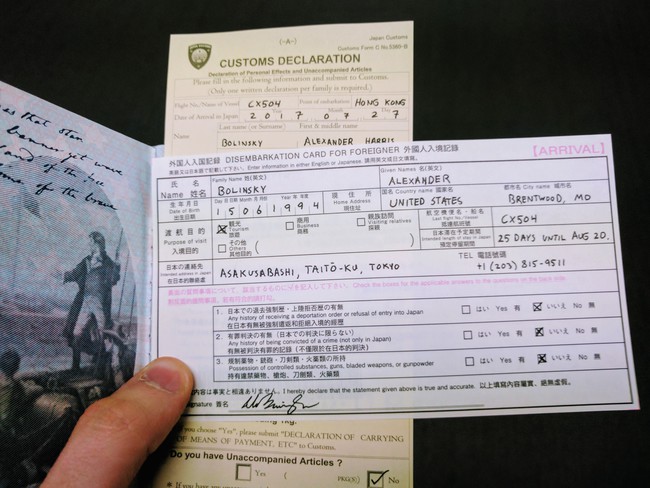 (-A-)
Japan Customs
CUSTOMS DECLARATION
Declaration of Personal Effects and Unaccompanied Articles
Please fill in the following information and submit to Customs.
(Only one written declaration per family is required.)
Flight No./Name of Vessel CX504 Point of embarkation HONG KONG
Date of Arrival in Japan 2017 Year 07 Month 27 Day
Last name (or Surname) First & middle name
Name BOLINSKY ALEXANDER HARRIS
外国人入国記録 DISEMBARKATION CARD FOR FOREIGNER 外國人入境記錄 【ARRIVAL】
英語又は日本語で記載して下さい。 Enter information in either English or Japanese. 請用英文或日文填寫。
氏名 Name 姓名 Family Name 姓(英文) BOLINSKY Given Names 名(英文) ALEXANDER
生年月日 Date of Birth 出生日期 Day 日 日期 Month 月 月份 Year 年 年份 15061994 現住所 Home Address 現住址 国名 Country name 國家名 UNITED STATES 都市名 City name 城市名 BRENTWOOD, MO
渡航目的 Purpose of visit 入境目的 観光 Tourism 旅遊 商用 Business 商務 親族訪問 Visiting relatives 探親 航空機便名・船名 Last flight No./Vessel 抵達航班號 CX504
その他 Others 其他目的 ( ) 日本滞在予定期間 Intended length of stay in Japan 預定停留期間 25 DAYS UNTIL AUG 20.
日本の連絡先 Intended address in Japan 在日本的聯絡處 ASAKUSABASHI, TAITŌ-KU, TOKYO TEL 電話號碼 +1 (203) 815-9511
Check the boxes for the applicable answers to the questions on the back side.
1. 日本での退去強制歴・上陸拒否歴の有無
Any history of receiving a deportation order or refusal of entry into Japan
在日本有無被強制遣返和拒絕入境的經歷
はい Yes 有 いいえ No 無
2. 有罪判決の有無（日本での判決に限らない）
Any history of being convicted of a crime (not only in Japan)
有無被判決有罪的記錄（不僅限於在日本的判決）
はい Yes 有 いいえ No 無
3. 規制薬物・銃砲・刀剣類・火薬類の所持
Possession of controlled substances, guns, bladed weapons, or gunpowder
持有違禁藥物、槍炮、刀劍類、火藥類
はい Yes 有 いいえ No 無
内容は事実と相違ありません。I hereby declare that the statement given above is true and accurate. 以上填寫內容屬實，絕無虛假。
signature 簽名
choose "Yes", please submit "DECLARATION OF CARRYING
OF MEANS OF PAYMENT, ETC" to Customs.
Do you have Unaccompanied Articles ?
Yes ( PKG(S).) No